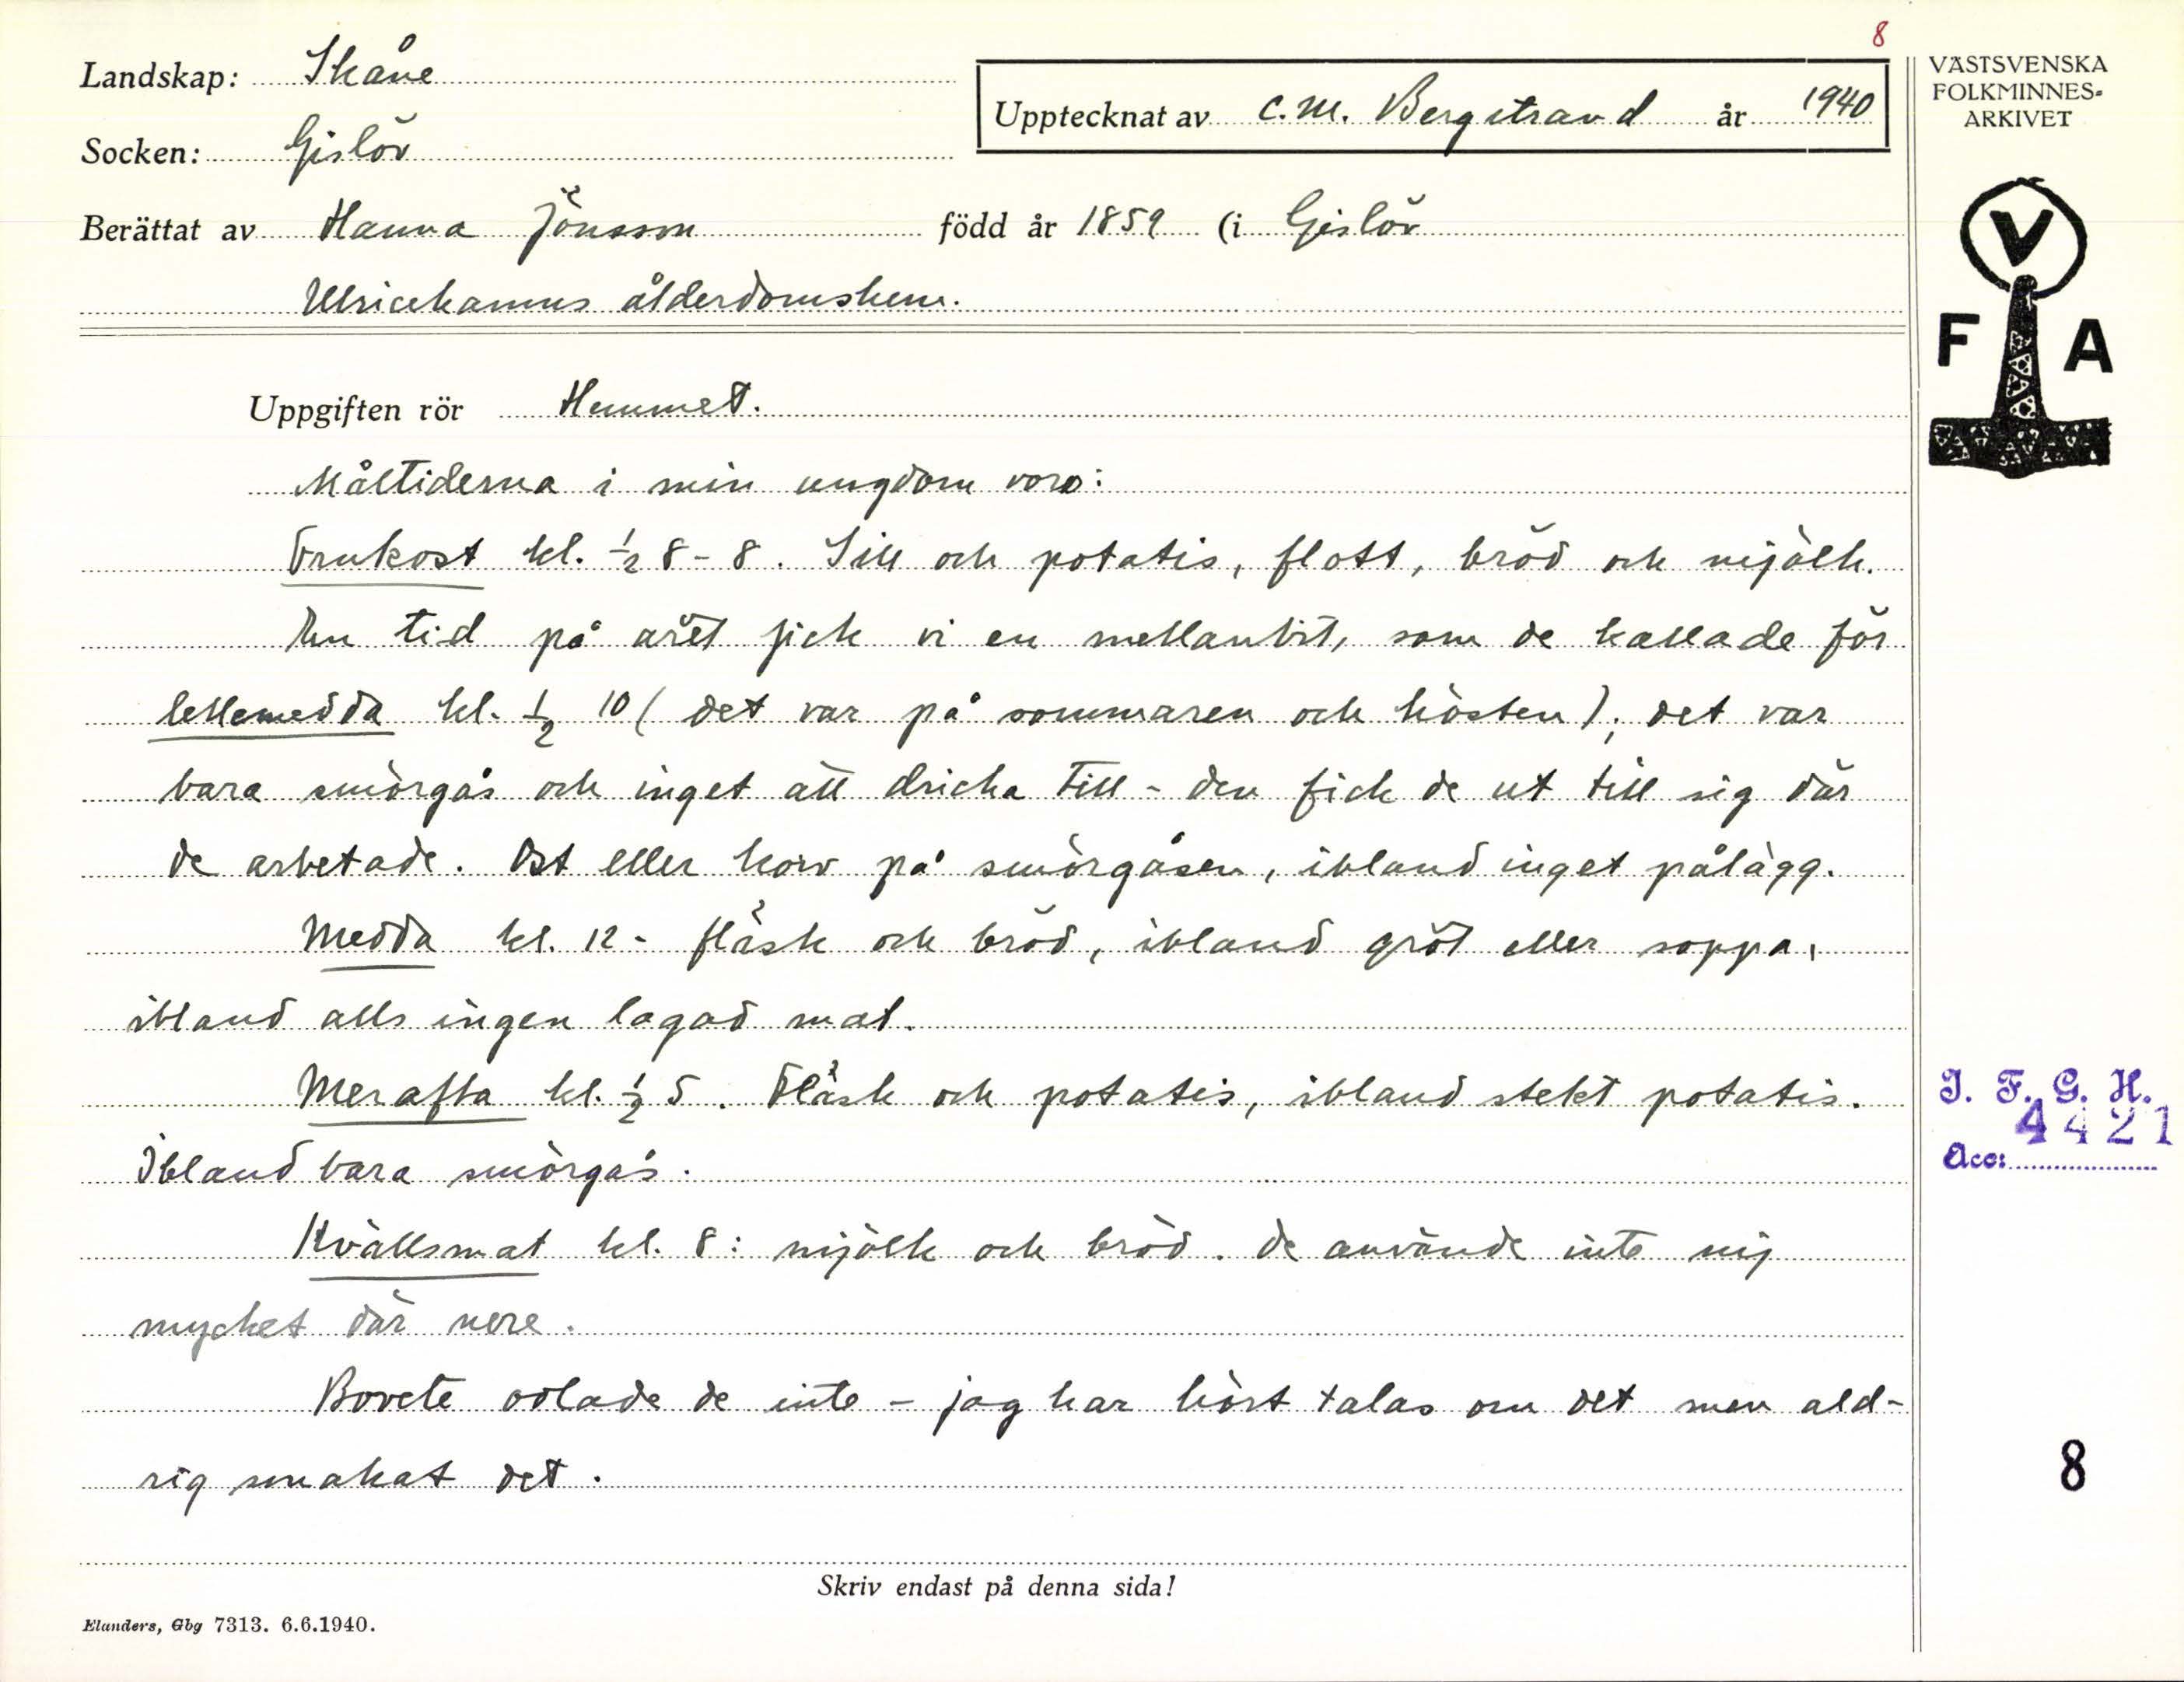 8
Landskap: Skåne
Upptecknat av C. M. Bergstrand år 1940
Socken: Gislöv
Berättat av Hanna Jönsson född år 1859 (i Gislöv
Ulricehamns ålderdomshem.
VÄSTSVENSKA
FOLKMINNES-
ARKIVET
V
F A
Uppgiften rör Hemmet.
Måltiderna i min ungdom voro:
Frukost kl. ½ 8-8. Sill och potatis, flott, bröd och mjölk.
En tid på året fick vi en mellanbit, som de kallade för
lellemedda kl. ½ 10 (det var på sommaren och hösten); det var
bara smörgås och inget att dricka till - den fick de ut till sig där
de arbetade. Ost eller korv på smörgåsen, ibland inget pålägg.
Medda kl. 12 - fläsk och bröd, ibland gröt eller soppa,
ibland alls ingen lagad mat.
Merafta kl. ½ 5. Fläsk och potatis, ibland stekt potatis.
Ibland bara smörgås.
Kvällsmat kl. 8: mjölk och bröd. De använde inte mj
mycket där nere.
Bovete odlade de inte - jag har hört talas om det men ald-
rig smakat det.
I. F. G. H.
4421
Acc:
8
Skriv endast på denna sida!
Elanders, Gbg 7313. 6.6.1940.